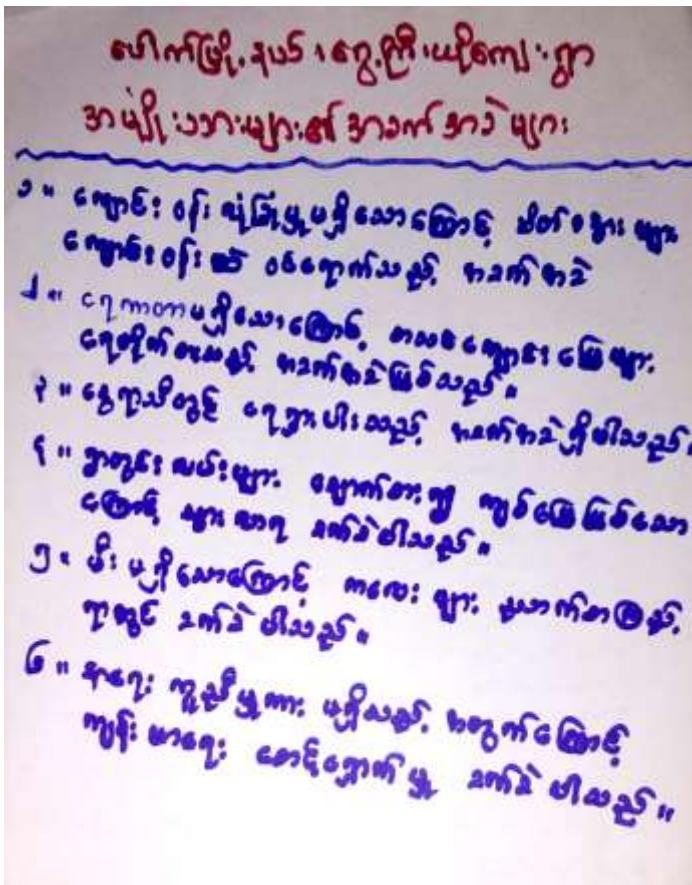 ပေါက်မြို့နယ်၊ ငွေ့ကြီးယိုကျေးရွာ
အမျိုးသားများ၏ အခက်အခဲများ
၁။ ကျောင်းဝန်းလုံခြုံမှုမရှိသောကြောင့် သိတ်စွားများ
ကျောင်းဝန်းထဲ ဝင်ရောက်သည့် အခက်အခဲ
၂။ ရေကာတာမရှိသောကြောင့် စာသင်ကျောင်းမြေများ
ရေတိုက်စားသည့် အခက်အခဲဖြစ်သည်။
၃။ နွေရာသီတွင် ရေရှားပါးသည့် အခက်အခဲရှိပါသည်။
၄။ ရွာတွင်းလမ်းများ ချောက်စား၍ ကျစ်မြေဖြစ်သော
ကြောင့် သွားလာရ ခက်ခဲပါသည်။
၅။ မီးမရှိသောကြောင့် ကလေးများ ညဘက်စာကြည့်
ရာတွင် ခက်ခဲပါသည်။
၆။ နာရေးကူညီမှုကား မရှိသည့် အတွက်ကြောင့်
ကျန်းမာရေး စောင့်ရှောက်မှု ခက်ခဲပါသည်။